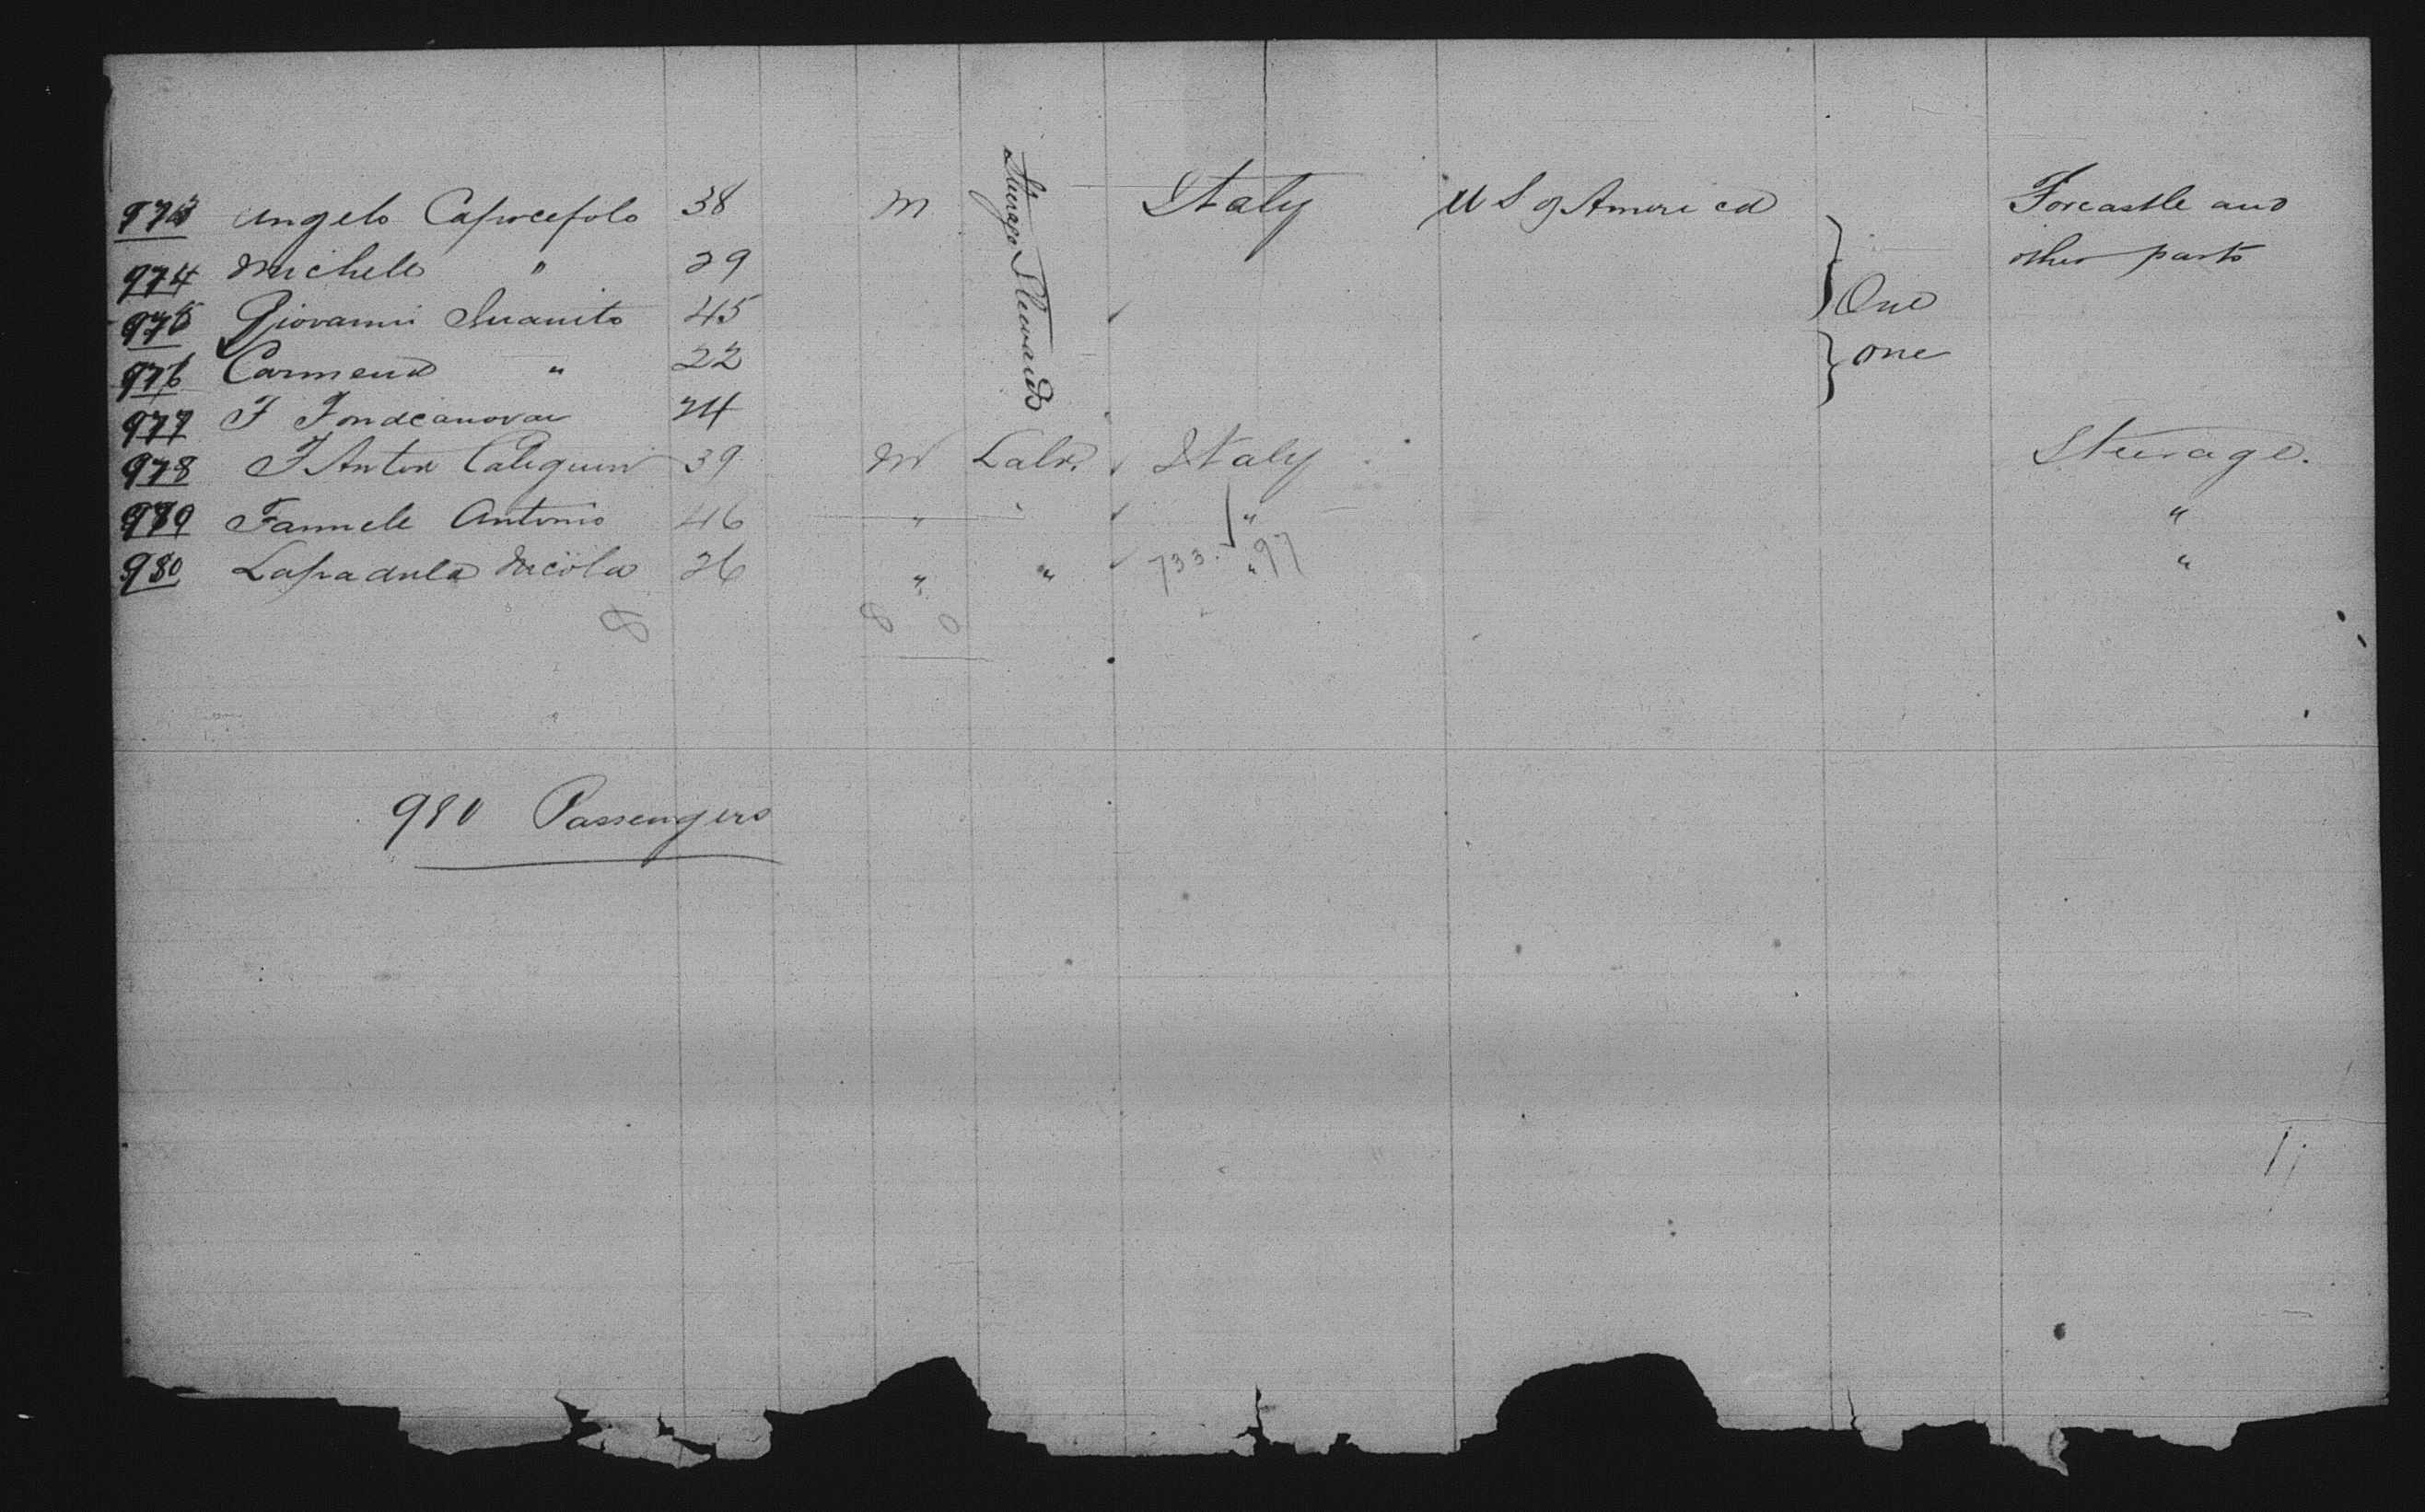 973 Angelo Capocefolo 38 M Steerage Stewards Italy U S of America Forcastle and
974 Michele " 29 other parts
975 Giovanni Suanito 45 One
976 Carmena " 22 one
977 F Fondcanovar 24
978 F Anton Calequin 39 M Labr. Italy Steerage.
979 Fannele Antonio 46 " " " "
980 Lapadula Nicola 26 " " " "
733. 97
8 8 0
980 Passengers